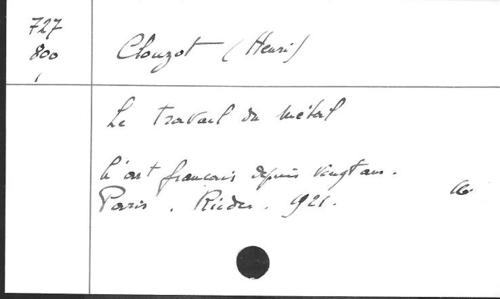 727
800
Clouzot (Henri)
Le travail du métal
L'art français depuis vingt ans.
Paris. Rieder. 1921.